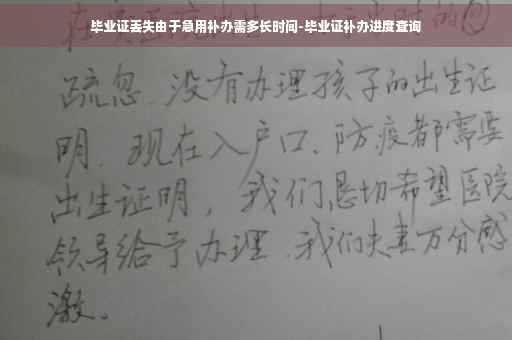 毕业证丢失由于急用补办需多长时间-毕业证补办进度查询
疏忽.没有办理孩子的出生证
明.现在入户口、防疫都需要
出生证明，我们恳切希望医院
领导给予办理.我们夫妻万分感
激。